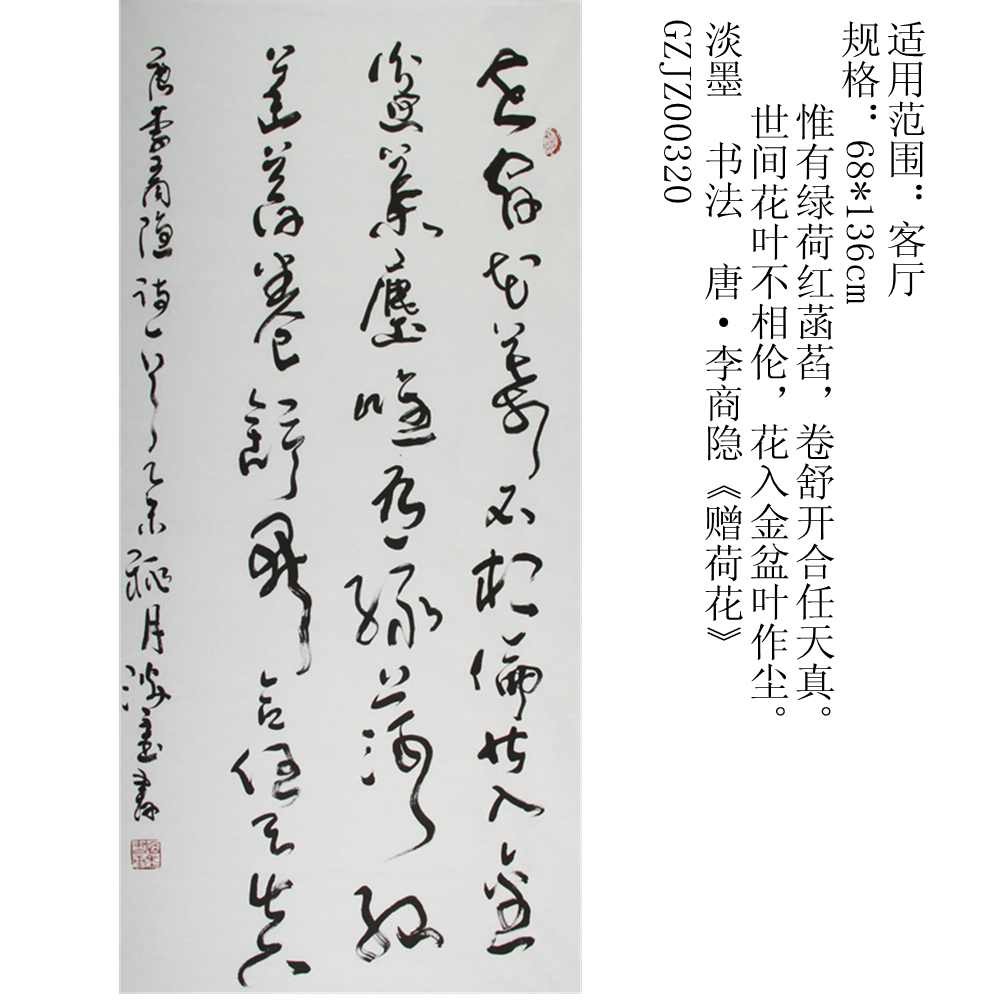 适用范围：客厅
规格：68*136cm
惟有绿荷红菡萏，卷舒开合任天真。
世间花叶不相伦，花入金盆叶作尘。
淡墨 书法 唐·李商隐《赠荷花》
GZJZ00320
世间花葉不相倫花入金
盆葉塵唯有緑荷红
菡萏卷舒開合任天真
唐李商隐诗一首乙未秋月淡墨書